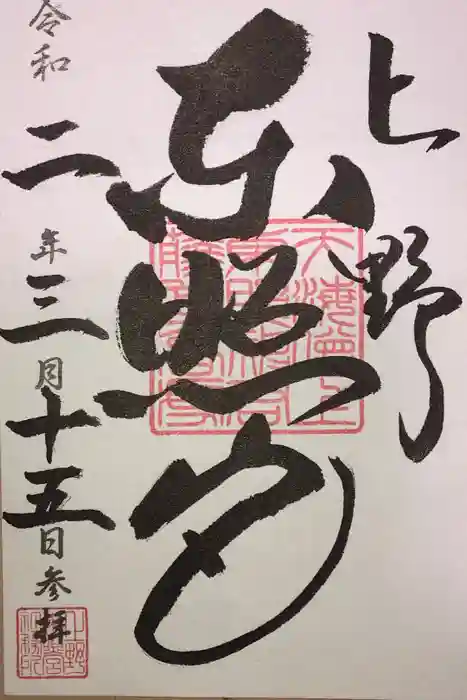 上野
東照宮
令和二年三月十五日参拝